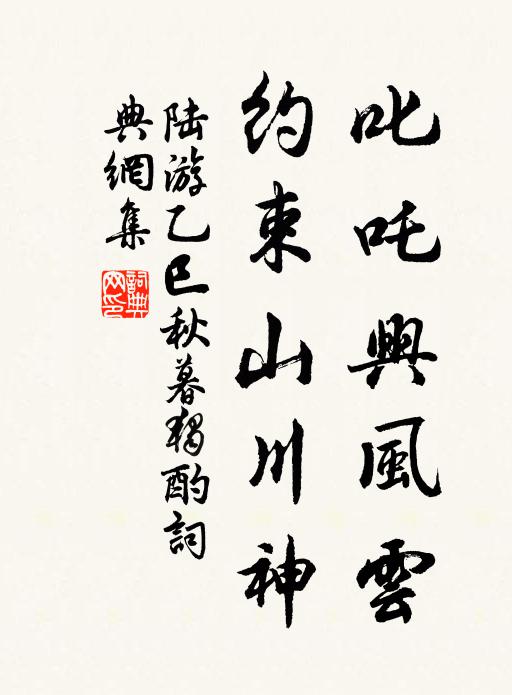 叱吒興風雲
約束山川神
陸游乙巳秋暮獨酌詞
典網集
詞典網印